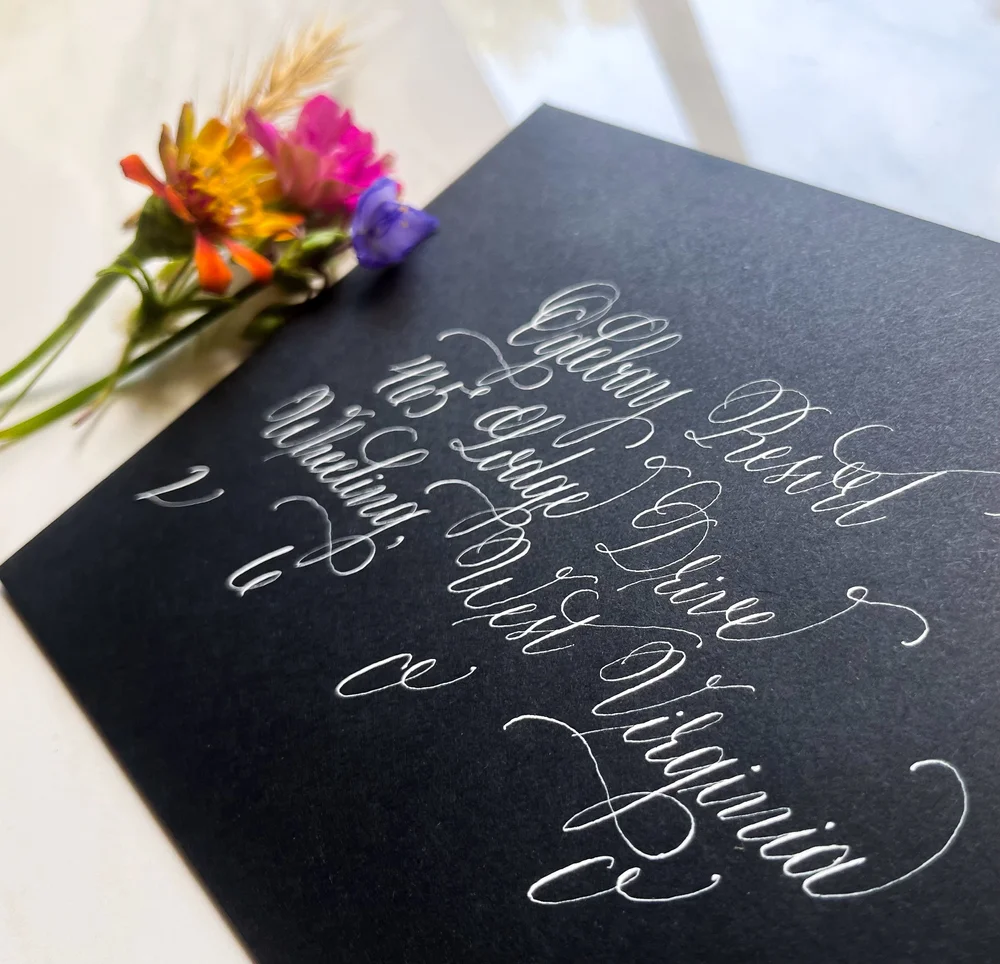 Oglebay Resort
465 Lodge Drive
Wheeling, West Virginia
2 6 0 0